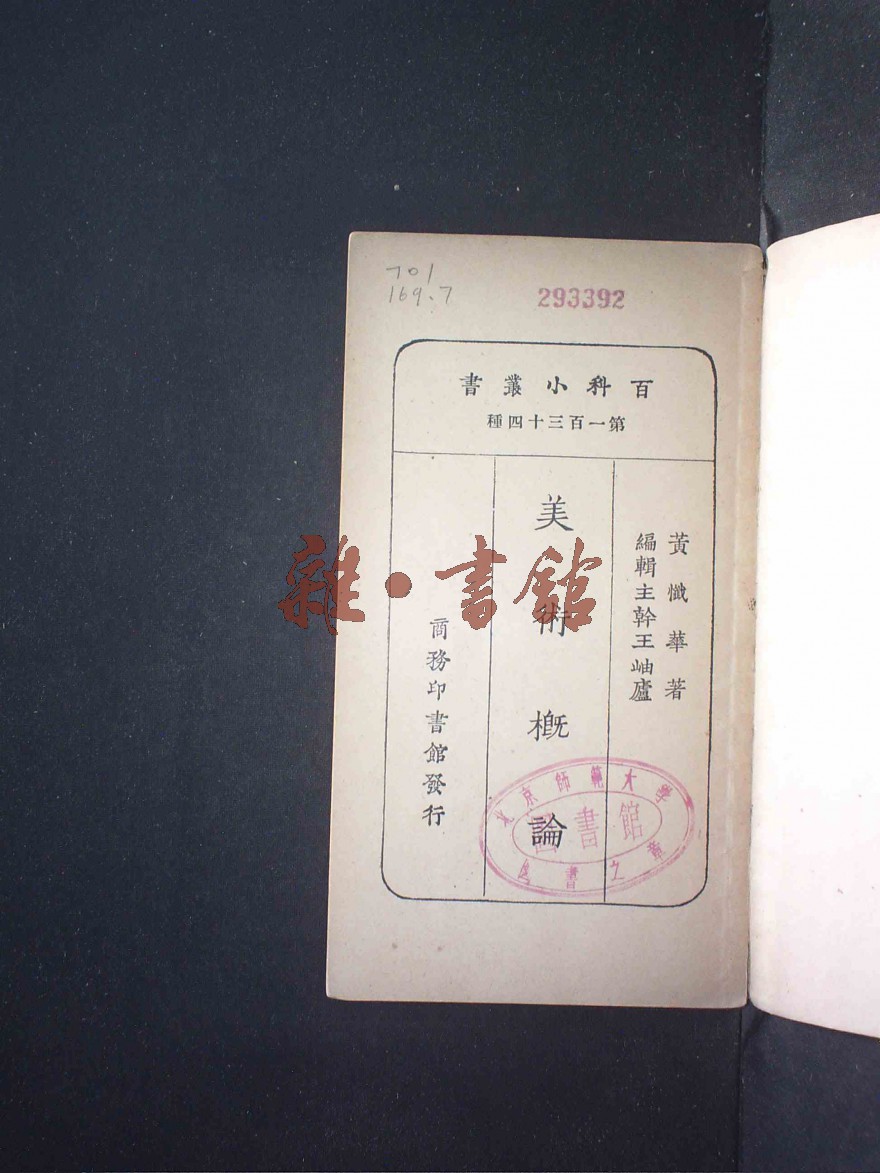 701
169.7
293392
百科小叢書
第一百三十四種
黃懺華著
編輯主幹王岫廬
美術概論
商務印書館發行
雜·書館
北京師範大學
圖書館
書之章